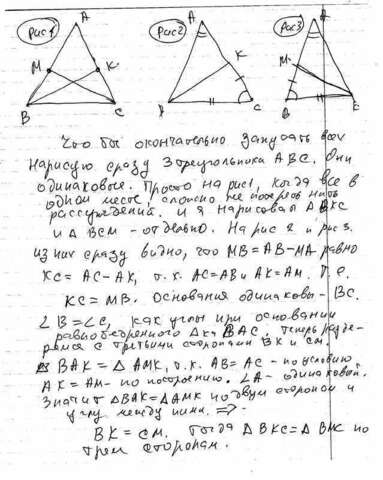 Рис1
Рис2
Рис3
A
A
A
M
K
K
M
B
C
B
C
B
C
Что бы окончательно запутать всех
Нарисую сразу 3 треугольника ABC. Они
одинаковые. Просто на рис1, когда все в
одном месте, сложно не потерять нить
рассуждений. И я нарисовал Δ BKC
и Δ BCM - отдельно. На рис 2 и рис 3.
из них сразу видно, что MB = AB-MA равно
KC = AC-AK, т.к. AC=AB и AK=AM. Т.е.
KC = MB. Основания одинаковы - BC.
∠B = ∠C, как углы при основании
равнобедренного Δка BAC. теперь
с третьими сторонами BK и CM.
BAK = Δ AMK, т.к. AB = AC - по условию
AK = AM - по построению. ∠A - одинаковой.
Значит ΔBAK = ΔAMK по двум сторонам и
углу между ними. =>
BK = CM. Тогда Δ BKC = Δ BMC по
трем сторонам.